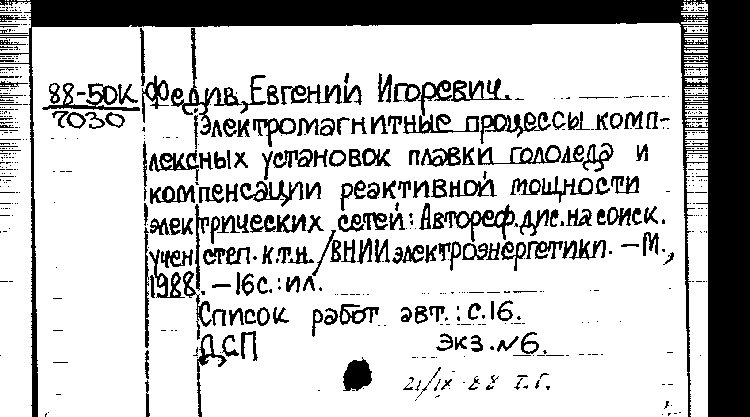 88-50К Федив, Евгений Игоревич.
7030 Электромагнитные процессы комп-
лексных установок плавки гололеда и
компенсации реактивной мощности
электрических сетей: Автореф.дис.на соиск.
учен.степ.к.т.н. /ВНИИэлектроэнергетики. – М.,
1988. – 16с.: ил.
Список работ авт.: с.16.
ДСП экз.№6.
21/IX-88 Т.Г.